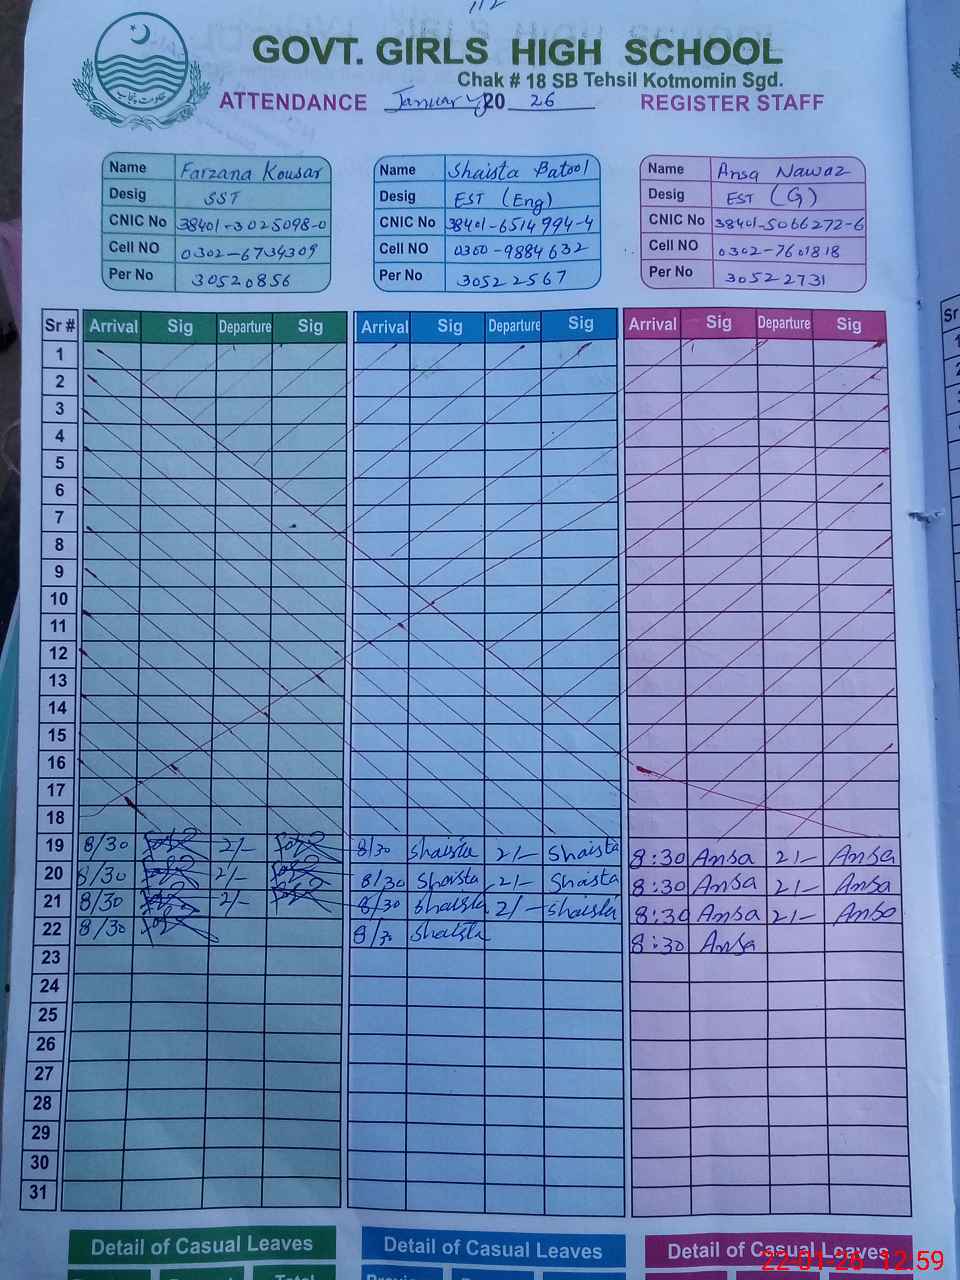 112
GOVT. GIRLS HIGH SCHOOL
Chak # 18 SB Tehsil Kotmomin Sgd.
ATTENDANCE January 20 26 REGISTER STAFF
حکومت پنجاب
Name Farzana Kousar
Desig SST
CNIC No 38401-3025098-0
Cell NO 0302-6734309
Per No 30520856
Name Shaista Batool
Desig EST (Eng)
CNIC No 38401-6514994-4
Cell NO 0300-9884632
Per No 30522567
Name Ansa Nawaz
Desig EST (G)
CNIC No 38401-5066272-6
Cell NO 0302-7601818
Per No 30522731
Sr # Arrival Sig Departure Sig Arrival Sig Departure Sig Arrival Sig Departure Sig
1
2
3
4
5
6
7
8
9
10
11
12
13
14
15
16
17
18
19 8/30 2/- 8/30 Shaista 2/- Shaista 8:30 Ansa 2/- Ansa
20 8/30 2/- 8/30 Shaista 2/- Shaista 8:30 Ansa 2/- Ansa
21 8/30 2/- 8/30 Shaista 2/- Shaista 8:30 Ansa 2/- Ansa
22 8/30 8/30 Shaista 8:30 Ansa
23
24
25
26
27
28
29
30
31
Detail of Casual Leaves Detail of Casual Leaves Detail of Casual Leaves
Total
22-01-26 12.59